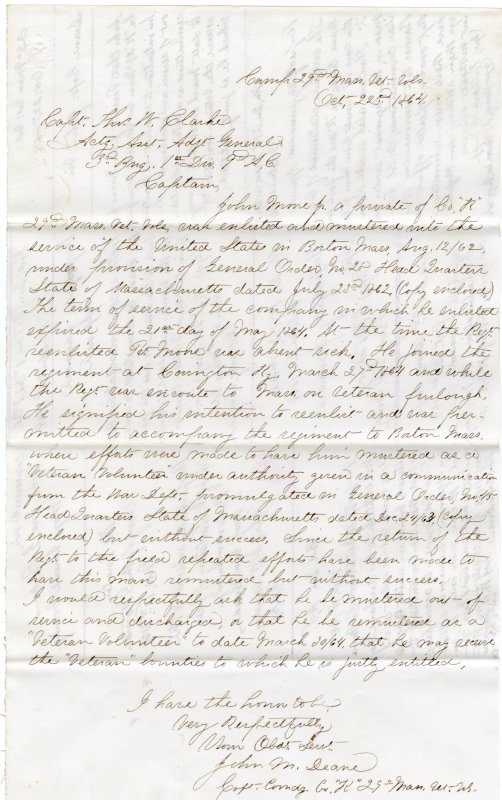 Camp 29th Mass. Vet. Vols.
Oct. 22d 1864.
Capt. Thos. W. Clarke
Actg. Asst. Adjt. General
3d Brig. 1st Div. 9th A.C.
Captain,
John Mone jr. a private of Co. "K"
29th Mass. Vet. Vols. was enlisted and mustered into the
service of the United States in Boston Mass. Aug. 12/62,
under provision of General Order, No. 28 Head Quarters
State of Massachusetts dated July 23d 1862, (Copy enclosed)
The term of service of the company in which he enlisted
expired the 21st day of May 1864. At the time the Regt.
reenlisted Pvt. Mone was absent sick. He joined the
regiment at Covington Ky. March 27th 1864 and while
the Regt. was enroute to Mass. on veteran furlough.
He signified his intention to reenlist and was per-
mitted to accompany the regiment to Boston Mass.
where efforts were made to have him mustered as a
"Veteran Volunteer" under authority given in a communication
from the War Dept. promulgated in General Order, No. 45
Head Quarters State of Massachusetts dated Dec. 24/63, (Copy
enclosed) but without success. Since the return of the
Regt. to the field repeated efforts have been made to
have this man remustered but without success.
I would respectfully ask that he be mustered out of
service and discharged, or that he be remustered as a
"Veteran Volunteer" to date March 30/64, that he may receive
the "Veteran" bounties to which he is justly entitled.
I have the honor to be
Very Respectfully
Your Obdt. Servt.
John M. Deane
Capt. Comdg. Co. "K" 29th Mass. Vet. Vols.